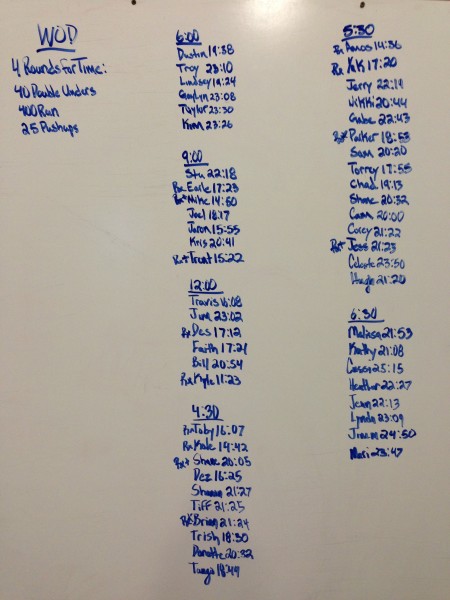 WOD
4 Rounds for Time:
40 Double Unders
400 Run
25 Pushups
6:00
Dustin 19:38
Troy 23:10
Lindsey 19:24
23:08
Taylor 23:30
Kim 23:26
9:00
Stu 22:18
Rx Earle 17:23
Rx+ Mike 14:50
Joel 18:17
Jaron 15:55
Kris 20:41
Rx+ Trent 15:22
12:00
Travis 16:08
Jim 23:02
Rx Des 17:12
Faith 17:21
Bill 20:54
Rx Kyle 11:23
4:30
Rx Toby 16:07
Rx 19:42
Rx+ Shane 20:05
Dez 16:25
Shannon 21:27
Tiff 21:25
Rx Brian 21:24
Trish 18:30
Danette 20:32
18:49
5:30
Rx Amos 14:36
Rx 17:20
Jerry 22:19
Nikki 20:44
Gabe 22:43
Rx+ Parker 18:53
Sam 20:20
Torrey 17:55
Chad 19:13
Shane 20:32
Cam 20:00
Corey 21:22
Rx+ Jess 21:23
Celeste 23:50
21:20
6:30
Melissa 21:53
Kathy 21:08
Casey 25:15
Heather 22:27
Jenn 22:13
Lynda 23:09
24:50
Mari 23:47